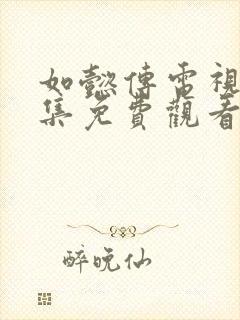 如懿傳電視
集免費觀看
醉晚仙